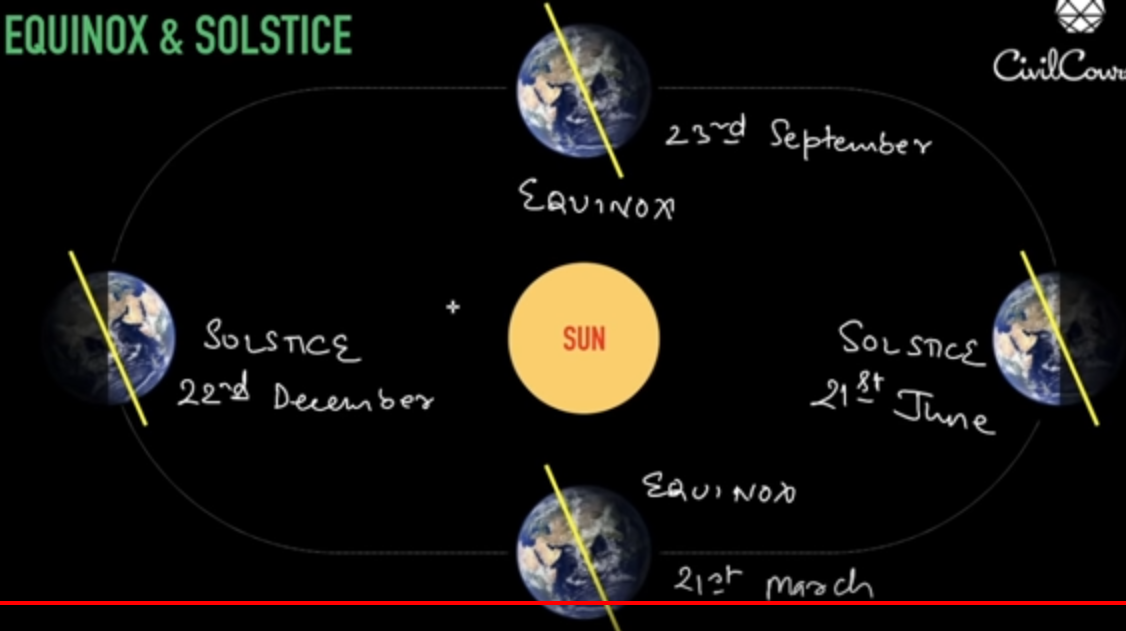 EQUINOX & SOLSTICE
CivilCour
23rd September
EQUINOX
SUN
SOLSTICE
22nd December
SOLSTICE
21st June
EQUINOX
21st March